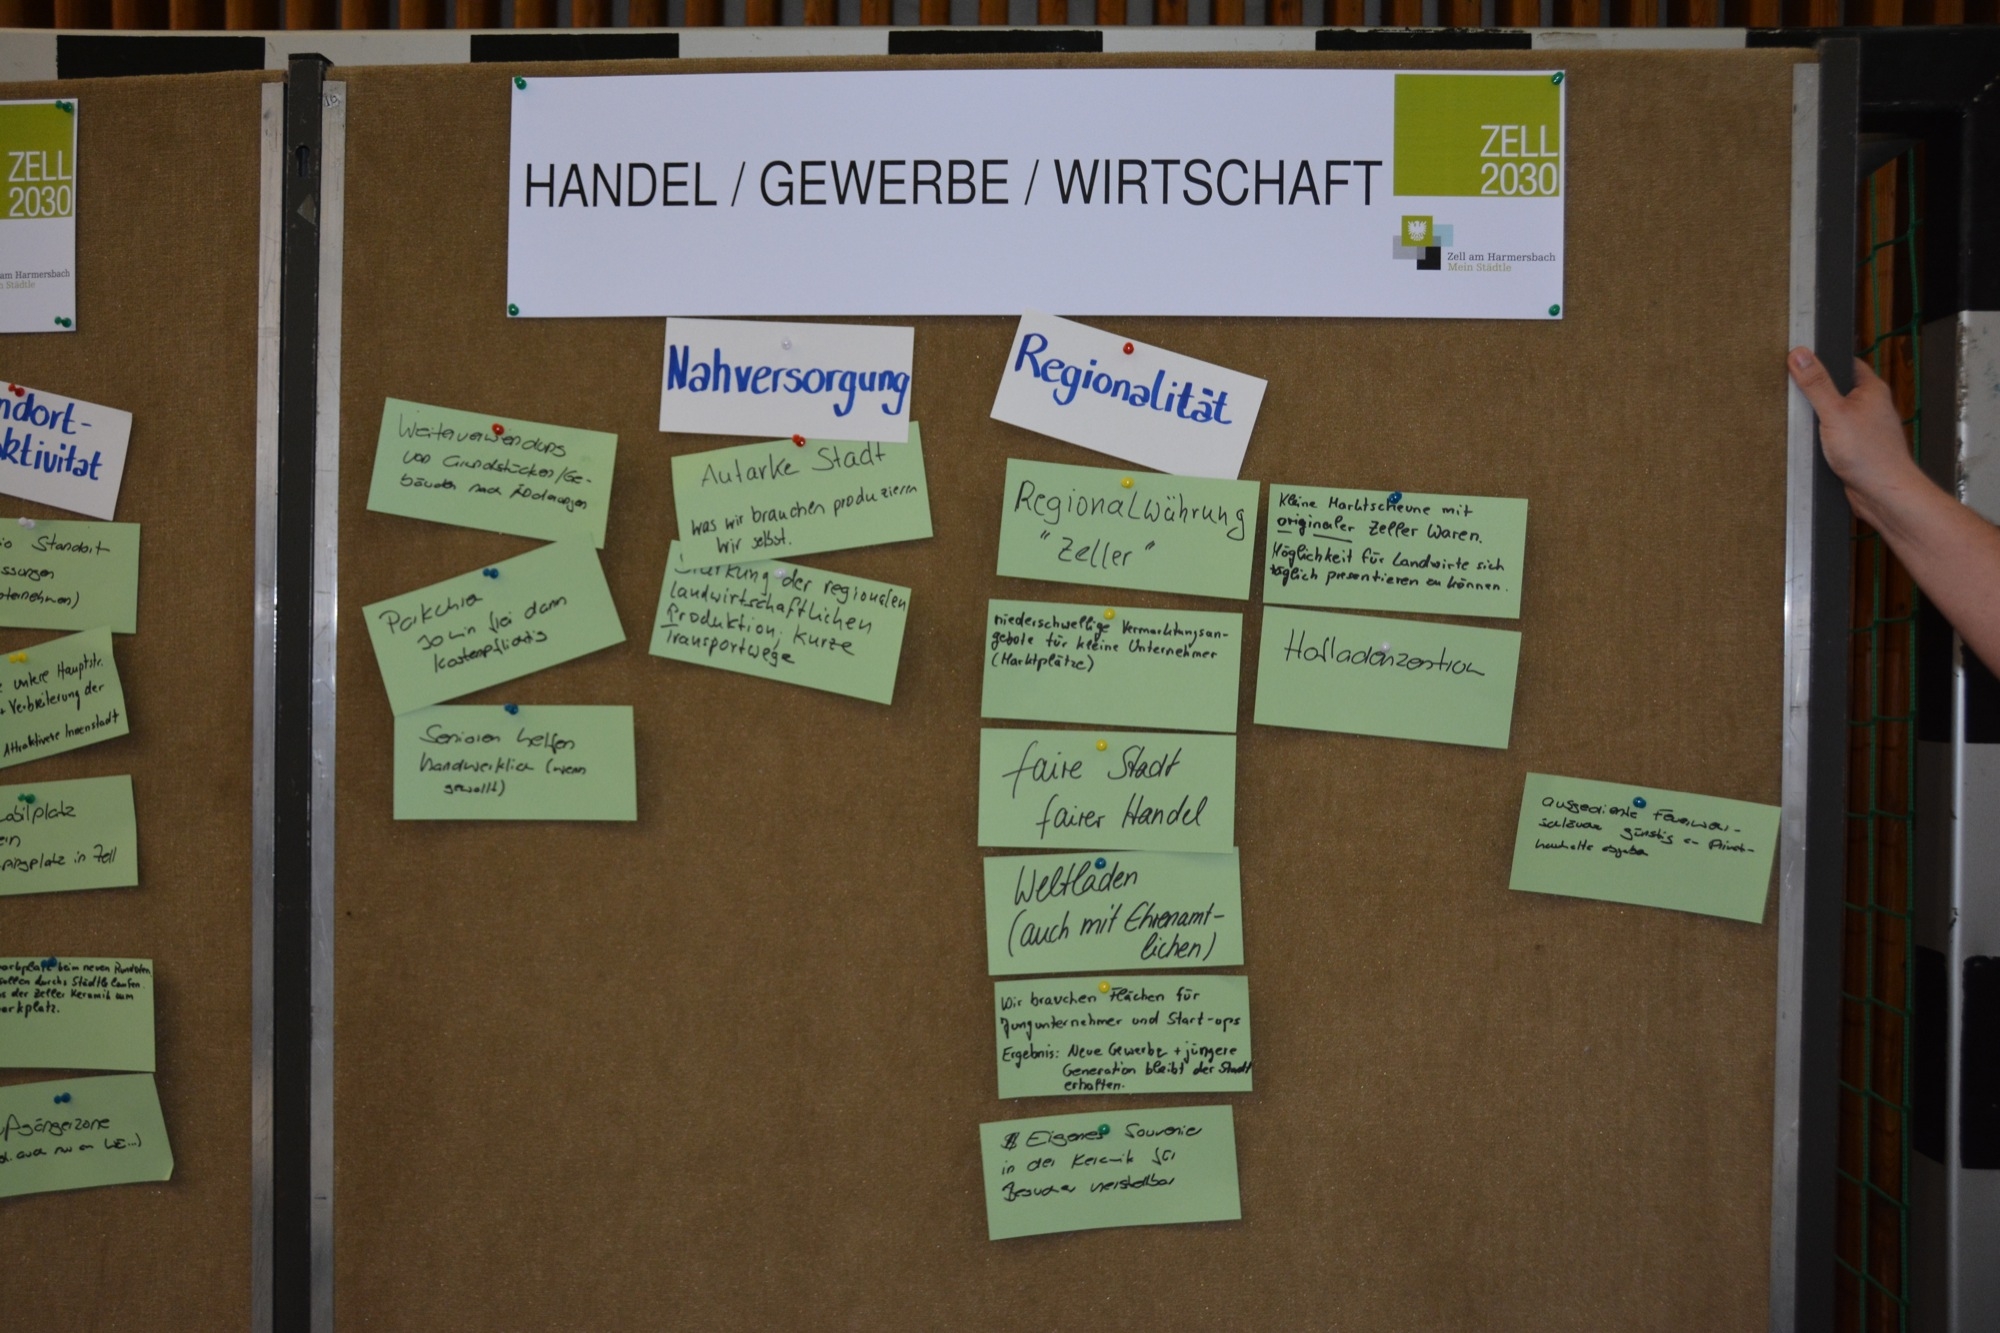 HANDEL / GEWERBE / WIRTSCHAFT
ZELL
2030
Zell am Harmersbach
Mein Städtle
Weiterverwendung
von Grundstücken/Ge-
bäuden nach
Parkchip
30 min frei dann
kostenpflichtig
Senioren helfen
handwerklich (wenn
gewollt)
Nahversorgung
Autarke Stadt
was wir brauchen produzieren
wir selbst.
Stärkung der regionalen
landwirtschaftlichen
Produktion, kurze
Transportwege
Regionalität
Regionalwährung
"Zeller"
niederschwellige Vermarktungsan-
gebote für kleine Unternehmer
(Marktplätze)
faire Stadt
fairer Handel
Weltladen
(auch mit Ehrenamt-
lichen)
Wir brauchen Flächen für
Jungunternehmer und Start-ups
Ergebnis: Neue Gewerbe + jüngere
Generation bleibt der Stadt
erhalten.
Eigenes Souvenir
in der Keramik für
Besucher herstellbar
Kleine Marktscheune mit
originaler Zeller Waren.
Möglichkeit für Landwirte sich
täglich presentieren zu können.
Hofladenzentrum
ausgediente Feuerwehr-
günstig an Privat-
haushalte abgeben
ZELL
2030
am Harmersbach
Städtle
ndort-
ktivität
Standort
ternehmen)
untere Hauptstr.
+ Verbreiterung der
Attraktivere Innenstadt
bilplatz
platz in Zell
parkplatz beim neuen
durchs Städtle laufen.
der Zeller Keramik zum
arkplatz.
ßgängerzone
auch nur am WE...)